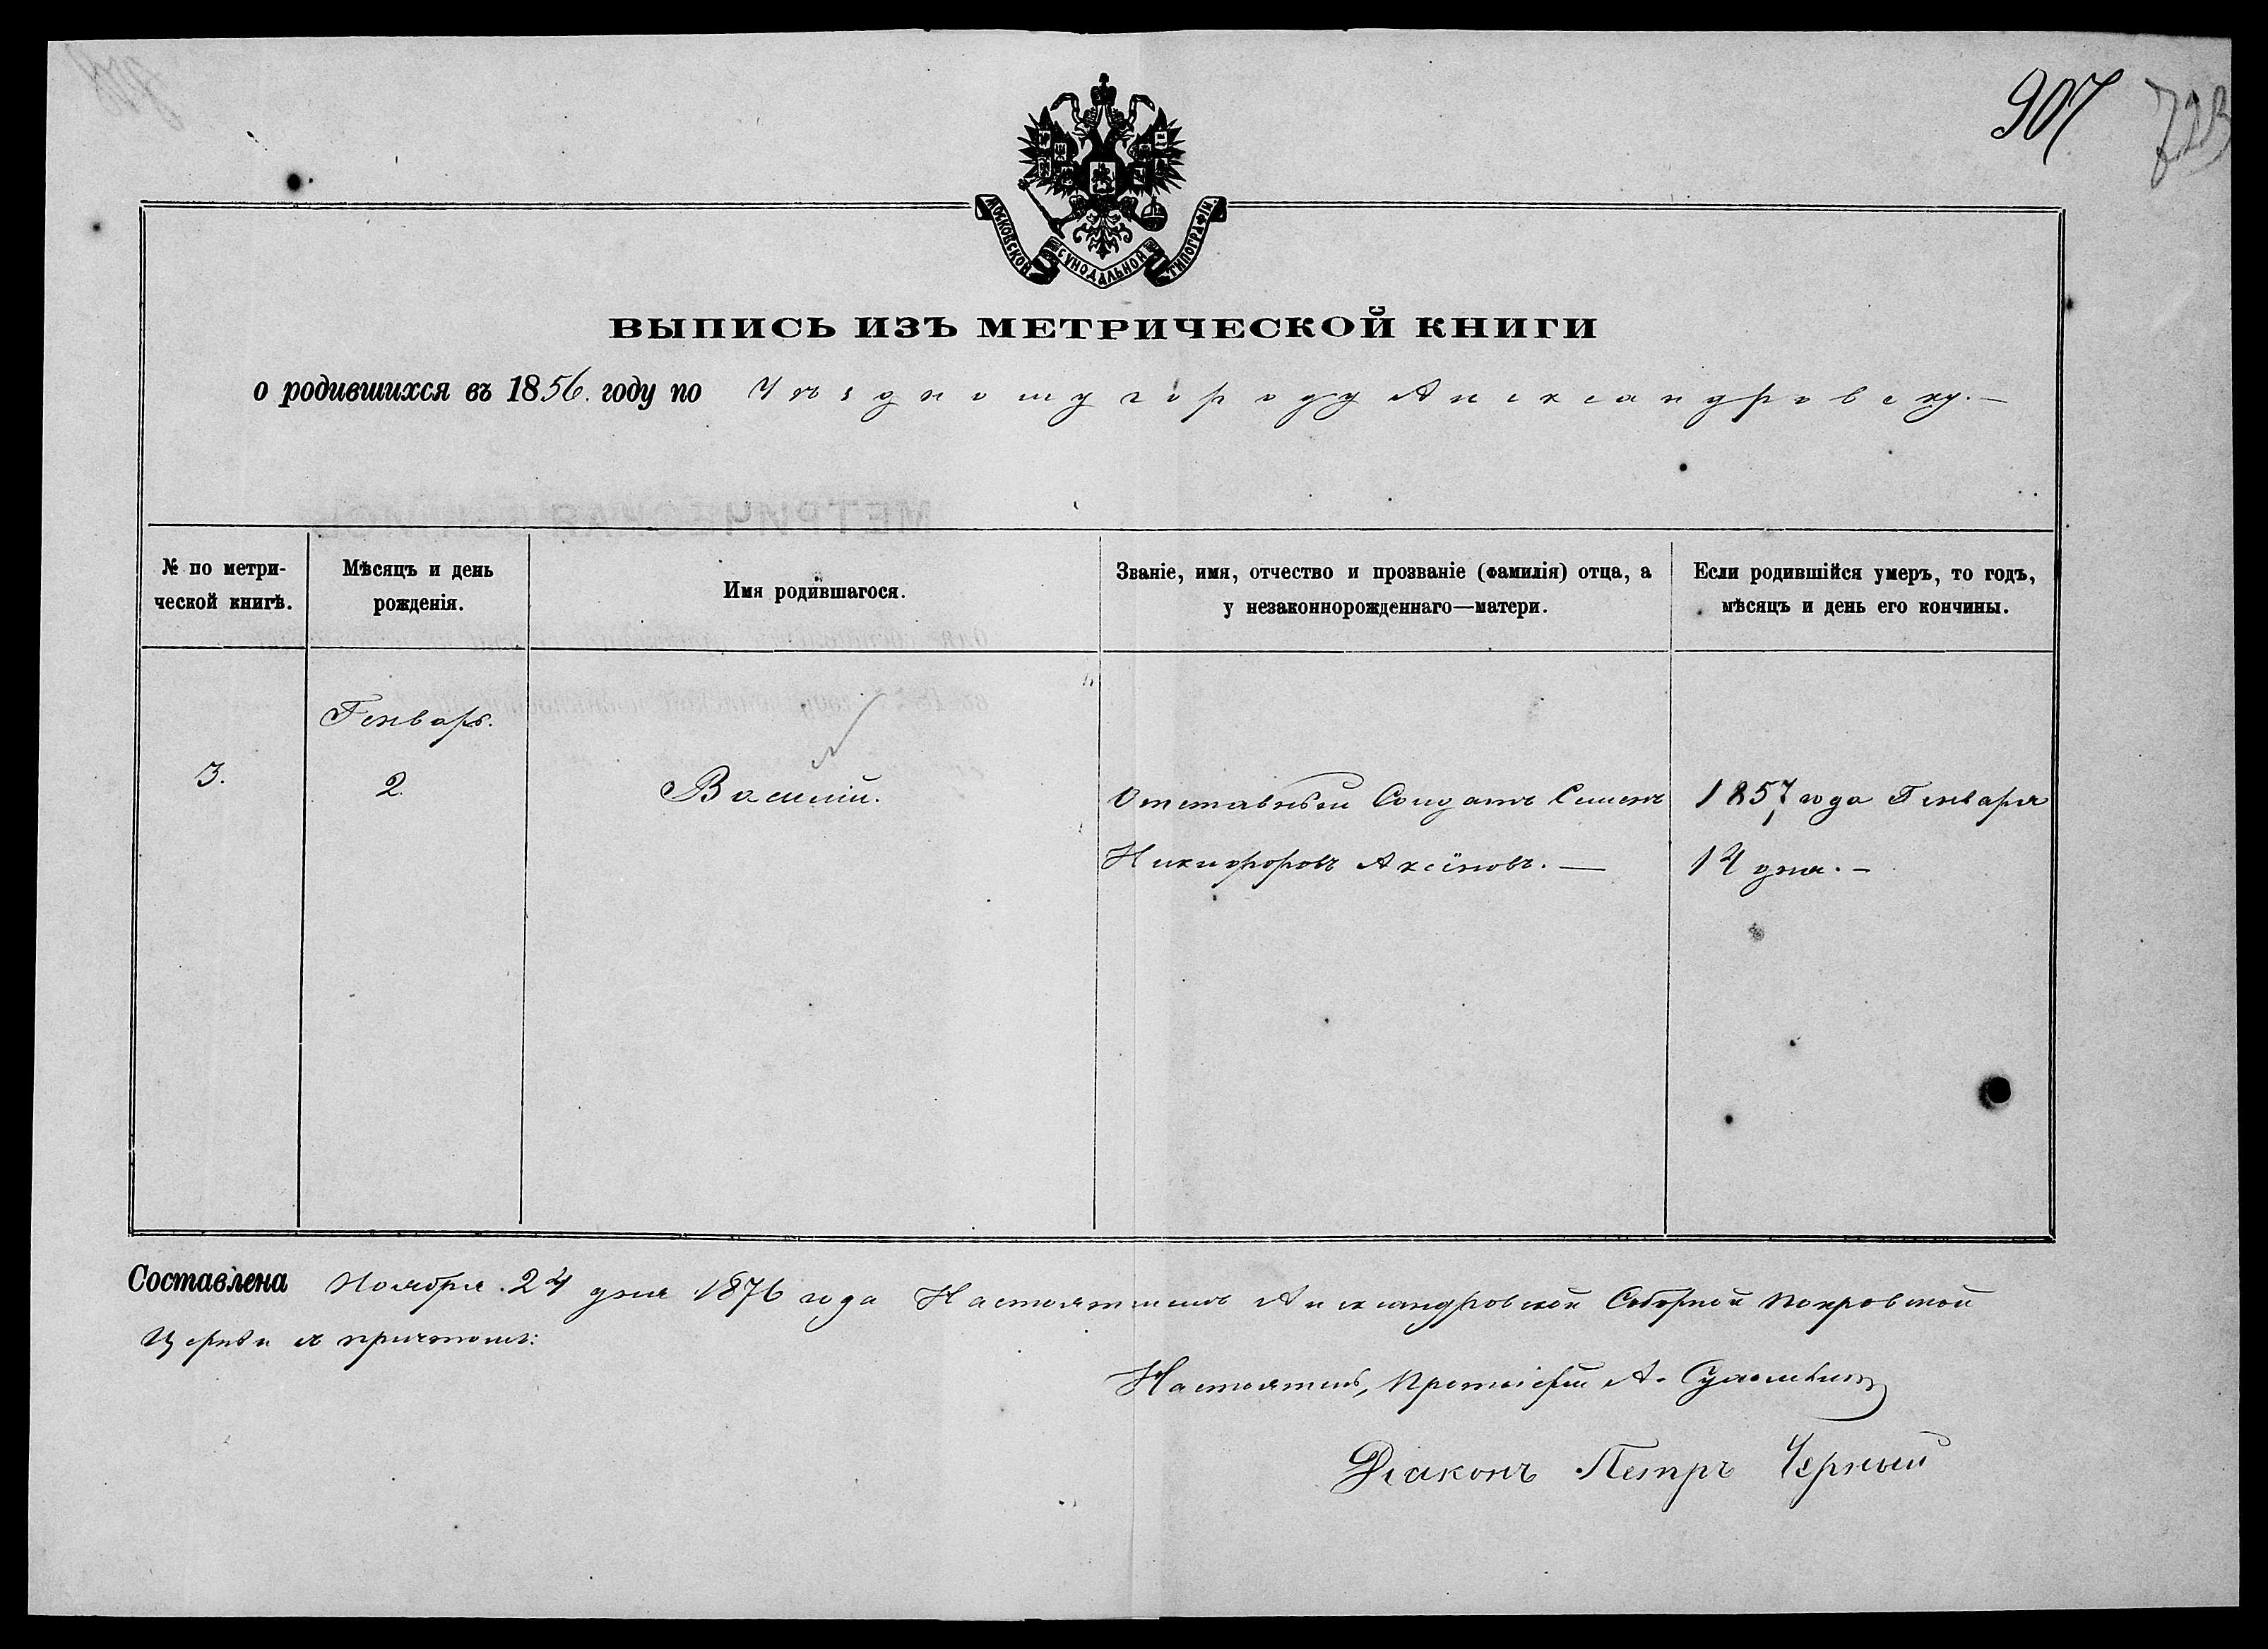 907
МОСКОВСКОЙ СУНОДАЛЬНОЙ ТИПОГРАФІИ.
ВЫПИСЬ ИЗЪ МЕТРИЧЕСКОЙ КНИГИ
о родившихся въ 1856. году по Уѣздному городу Александровску. —
№ по метри-
ческой книгѣ.
Мѣсяцъ и день
рожденія.
Имя родившагося.
Званіе, имя, отчество и прозваніе (фамилія) отца, а
у незаконнорожденнаго—матери.
Если родившійся умеръ, то годъ,
мѣсяцъ и день его кончины.
3.
Генварь.
2.
Василій.
Отставный Солдатъ Семенъ
Никифоровъ Аксіновъ. —
1857 года Генваря
14 дня. —
Составлена Ноября 24 дня 1876 года Настоятелемъ Александровской Соборной Покровской
Церкви съ причтомъ:
Настоятель, Протоіерей А.
Діаконъ Петръ Черный